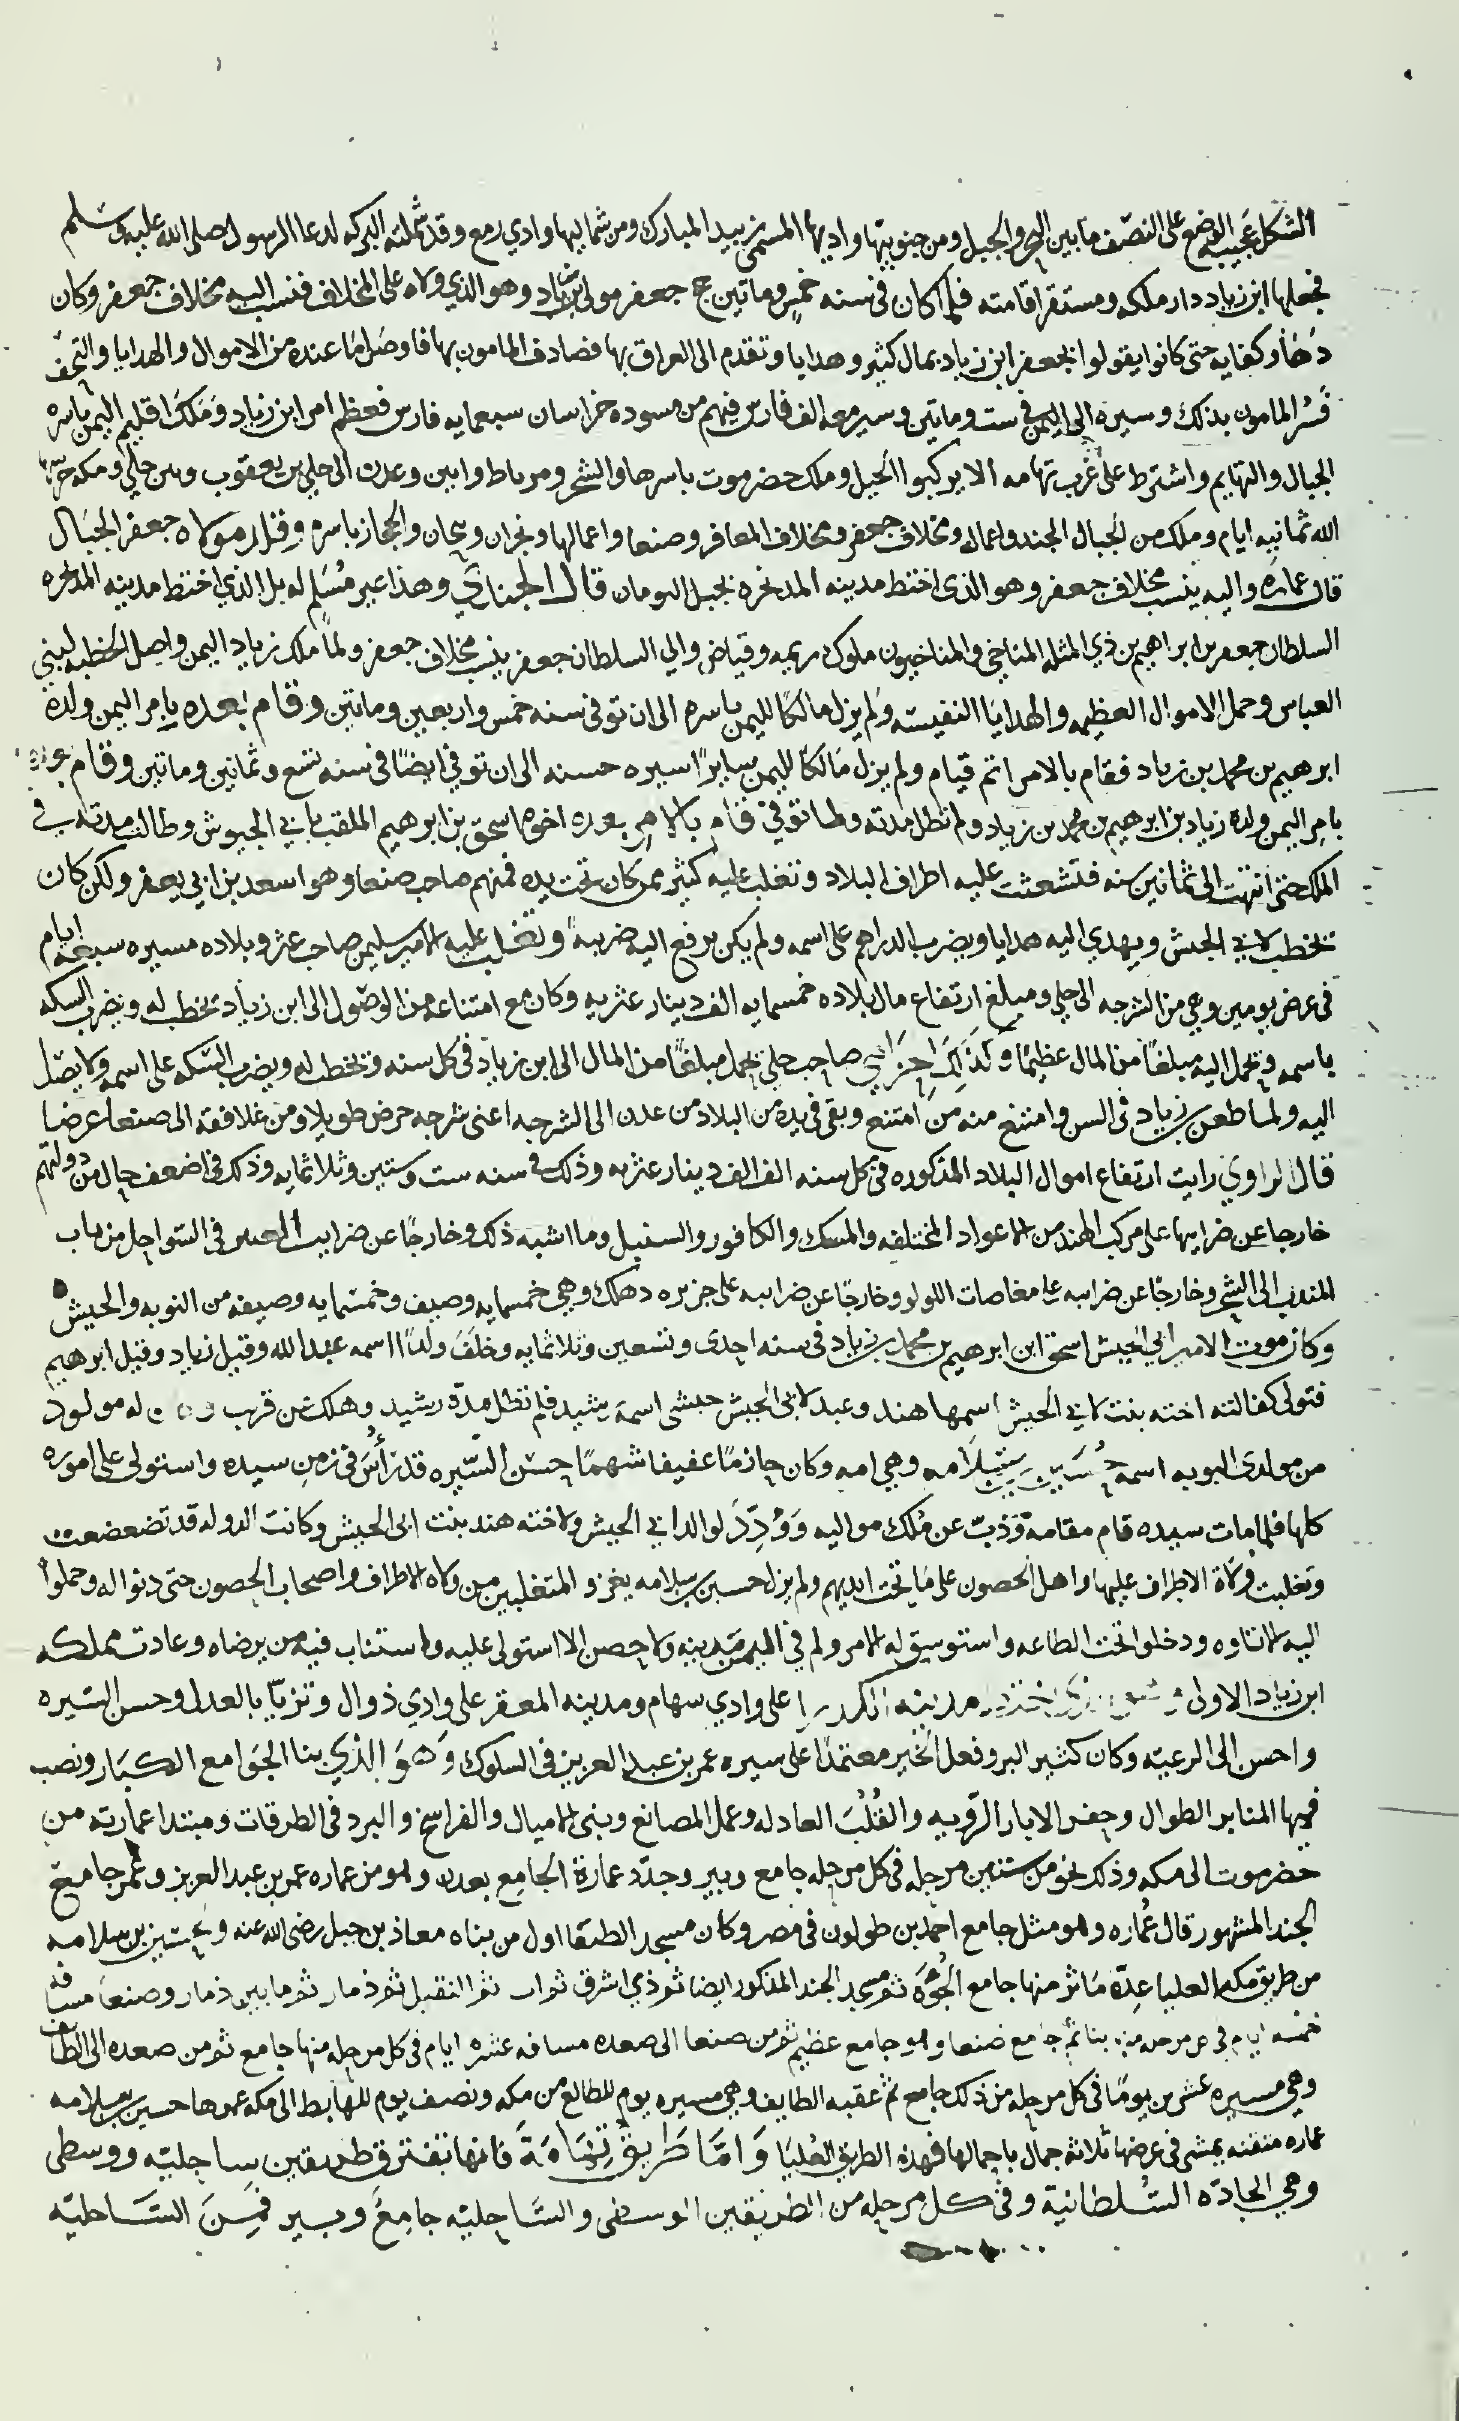 الشكل عجيبه الوضع على النصف ما بين البحر والجبل ومن جنوبيها واديها المسمى زبيد المبارك ومن شماليها وادي رمع وقد شملته البركه لدعا الرسول صلى الله عليه وسلم
فجعلها ابن زياد دار ملكه ومستقر اقامته فلما كان فى سنه خمس وماتين حج جعفر مولى ابن زياد وهو الذي ولاه على المخلاف فنسب اليه مخلاف جعفر وكان
دهاء وكفايه حتى كانوا يقولوا بجعفر ابن زياد بمال كثير وهدايا وتقدم الى العراق بها فصادف المامون بها فاوصل ما عنده من الاموال والهدايا والتحف
فسر المامون بذلك وسيره الى اليمن فى ست وماتين وسير معه الف فارس فيهم من مسوده خراسان سبعمايه فارس فعظم امر ابن زياد وملك اقليم اليمن باسره
الجبال والتهايم واشترط على عرب تهامه الا يركبوا الخيل وملك حضرموت باسرها والشحر ومرباط وابين وعدن الى حلي بن يعقوب وبين حلي ومكه حرسها
الله ثمانيه ايام وملك من الجبال الجند واعماله ومخلاف جعفر ومخلاف المعافر وصنعا واعمالها ونجران وبيحان والحجاز باسره وقلد مولاه جعفر الجبال
قال عماره واليه ينسب مخلاف جعفر وهو الذى اختط مدينه المذخره بجبل الومان قال الجندي وهذا غير مسلم له بل الذي اختط مدينه المذخره
السلطان جعفر بن ابراهيم بن ذي المثله المناخي والمناخيون ملوك ريمه وقياض والي السلطان جعفر ينسب مخلاف جعفر ولما ملك زياد اليمن واصل الخطبه لبني
العباس وحمل الاموال العظيمه والهدايا النفيسه ولم يزل مالكا لليمن باسره الى ان توفى سنه خمس واربعين وماتين وقام بعده بامر اليمن ولده
ابرهيم بن محمد بن زياد فقام بالامر اتم قيام ولم يزل مالكا لليمن سايرا سيره حسنه الى ان توفي ايضا فى سنه تسع وثمانين وماتين وقام بعده
بامر اليمن ولده زياد بن ابرهيم بن محمد بن زياد ولم تطل مدته ولما توفي قام بالامر بعده اخوه اسحق بن ابرهيم الملقب بابي الجيوش وطالت مدته في
الملك حتى انتهت الى ثمانين سنه فتشعثت عليه اطراف البلاد وتغلب عليه كثير ممن كان تحت يده فمنهم صاحب صنعا وهو اسعد بن ابي يعفر ولكن كان
يخطب لابي الجيش ويهدي اليه هدايا ويضرب الدراهم على اسمه ولم يكن يرفع اليه ضريبة وتغلب عليه الامير سليمن صاحب عثر وبلاده مسيره سبعه ايام
فى عرض يومين وهي من الشرجه الى حلي ومبلغ ارتفاع مال بلاده خمسمايه الف دينار عثريه وكان مع امتناعه من الوصول الى ابن زياد يخطب له ويضرب السكه
باسمه ويحمل اليه مبلغا من المال عظيما وكذلك احزابي صاحب حلي يحمل مبلغا من المال الى ابن زياد فى كل سنه ويخطب له ويضرب السكه على اسمه ولا يصل
اليه ولما طعن بن زياد فى السن وامتنع منه من امتنع وبقى فى يده من البلاد من عدن الى الشرجه اعنى شرجه حرض طويلا ومن غلافقه الى صنعا عرضا
قال الراوي رايت ارتفاع اموال البلاد المذكوره فى كل سنه الف الف دينار عثريه وذلك فى سنه ست وستين وثلاثمايه وذلك فى اضعف حال من دولتهم
خارجا عن ضرايبها على مركب الهند من الاعواد المختلفه والمسك والكافور والسنبل وما اشبه ذلك وخارجا عن ضرايب العنبر فى السواحل من باب
المندب الى الشحر وخارجا عن ضرايبه على مغاصات اللولو وخارجا عن ضرايبه على جزيره دهلك وهي خمسمايه وصيف وخمسمايه وصيفه من النوبه والحبش
وكان موت الامير ابي الجيش اسحق ابن ابرهيم بن محمد بن زياد فى سنه احدى وتسعين وثلاثمايه وخلف ولدا اسمه عبد الله وقيل زياد وقيل ابرهيم
فتولى كفالته اخته بنت لابي الحيش اسمها هند وعبد لابى الجيش حبشى اسمه رشيد فلم تطل مدة رشيد وهلك عن قرب وكان له مولود
من مولدى النوبه اسمه حسين بن سلامه وهي امه وكان حازما عفيفا شهما حسن السيره قد رأس فى زمن سيده واستولى على اموره
كلها فلما مات سيده قام مقامه وذب عن ملك مواليه ووزر لولد ابي الجيش ولاخته هند بنت ابى الجيش وكانت الدوله قد تضعضعت
وتغلبت ولاة الاطراف عليها واهل الحصون على ما تحت ايديهم ولم يزل حسين بن سلامه يغزو المتغلبين من ولاه الاطراف واصحاب الحصون حتى دنوا له وحملوا
اليه الاتاوه ودخلوا تحت الطاعه واستوسق له الامر ولم في اليمن مدينه ولا حصن الا استولى عليه واستناب فيه من يرضاه وعادت مملكه
ابن زياد الاول اختط مدينه الكدرا على وادي سهام ومدينه المعقر على وادي ذوال وتزيا بالعدل وحسن السيره
واحسن الى الرعيه وكان كثير البر وفعل الخير معتمدا على سيره عمر بن عبد العزيز فى السلوك وهو الذي بنا الجوامع الكبار ونصب
فيها المنابر الطوال وحفر الابار الرويه والقلب العادله وعمل المصانع وبنى الاميال والفراسخ والبرد فى الطرقات ومبتدا عمارته من
حضرموت الى مكه وذلك نحو من ستين مرحله فى كل مرحله جامع وبير وجدد عمارة الجامع بعدن وهو من عماره عمر بن عبد العزيز وعمر جامع
الجند المشهور قال عماره وهو مثل جامع احمد بن طولون فى مصر وكان مسجد الطيقا اول من بناه معاذ بن جبل رضى الله عنه وحسين بن سلامه
من طريق مكه العليا عدة ماثر منها جامع الجوه ثم مسجد الجند المذكور ايضا ثم ذي اشرق ثم اب ثم النقيل ثم ذمار ثم ما بين ذمار وصنعا مسافه
خمسه ايام فى كل مرحله منها بنا ثم جامع صنعا وهو جامع عظيم ثم من صنعا الى صعده مسافه عشره ايام فى كل مرحله منها جامع ثم من صعده الى الطايف
وهي مسيره عشرين يوما فى كل مرحله من ذلك جامع ثم عقبه الطايف وهي مسيره يوم للطالع من مكه ونصف يوم للهابط الى مكه عمرها حسين بن سلامه
عماره متقنه يمشى فى عرضها ثلاثه جمال باحمالها فهذه الطريق العليا واما طريق تهامة فانها تفترق طريقين ساحليه ووسطى
وهي الجاده السلطانية وفى كل مرحله من الطريقين الوسطى والساحليه جامع وبير فمن الساحليه